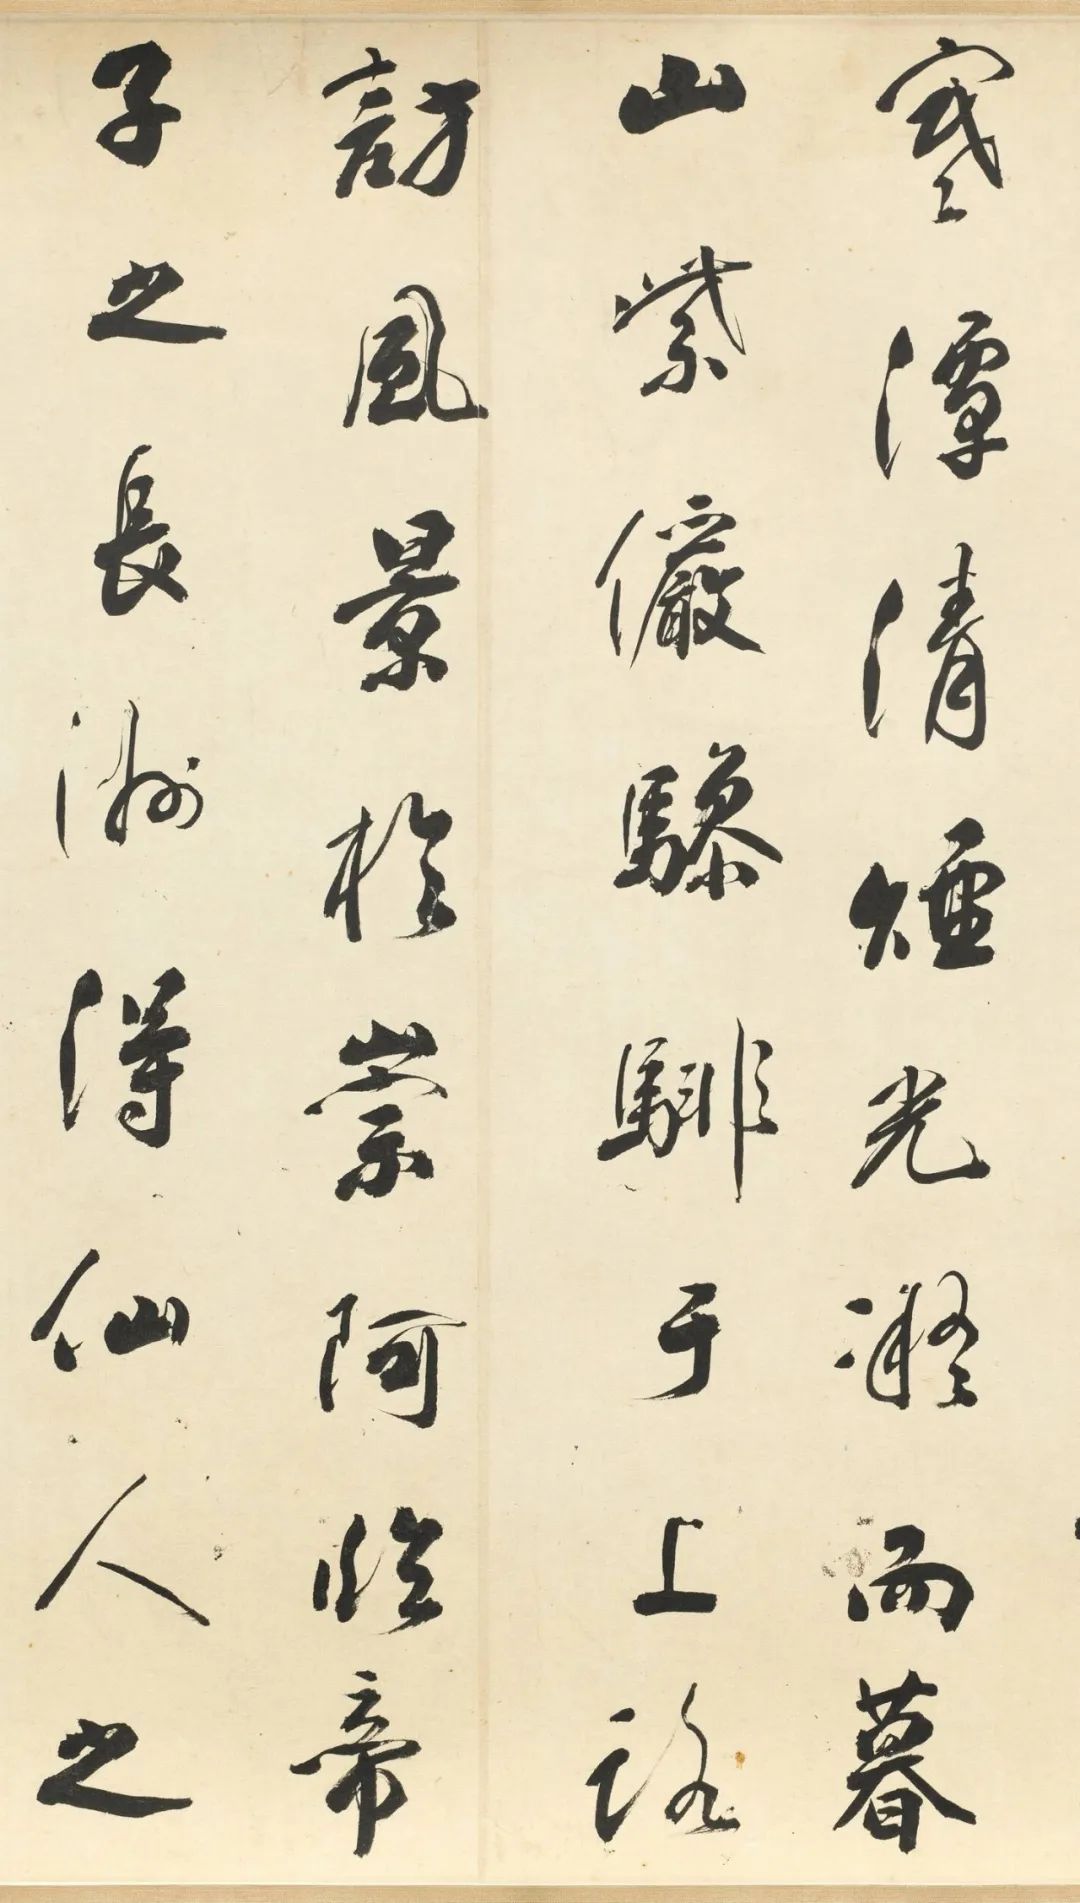 寒潭清煙光凝而暮
山紫儼驂騑于上路
訪風景於崇阿臨帝
子之長洲得仙人之